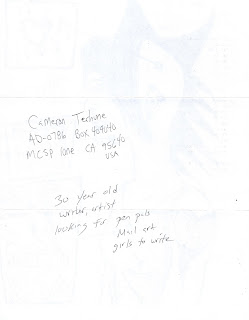 Cameron Terhune
AD-0786 Box 409040
MCSP Ione CA 95640
USA
30 year old
writer, artist
looking for pen pals
Mail art
girls to write